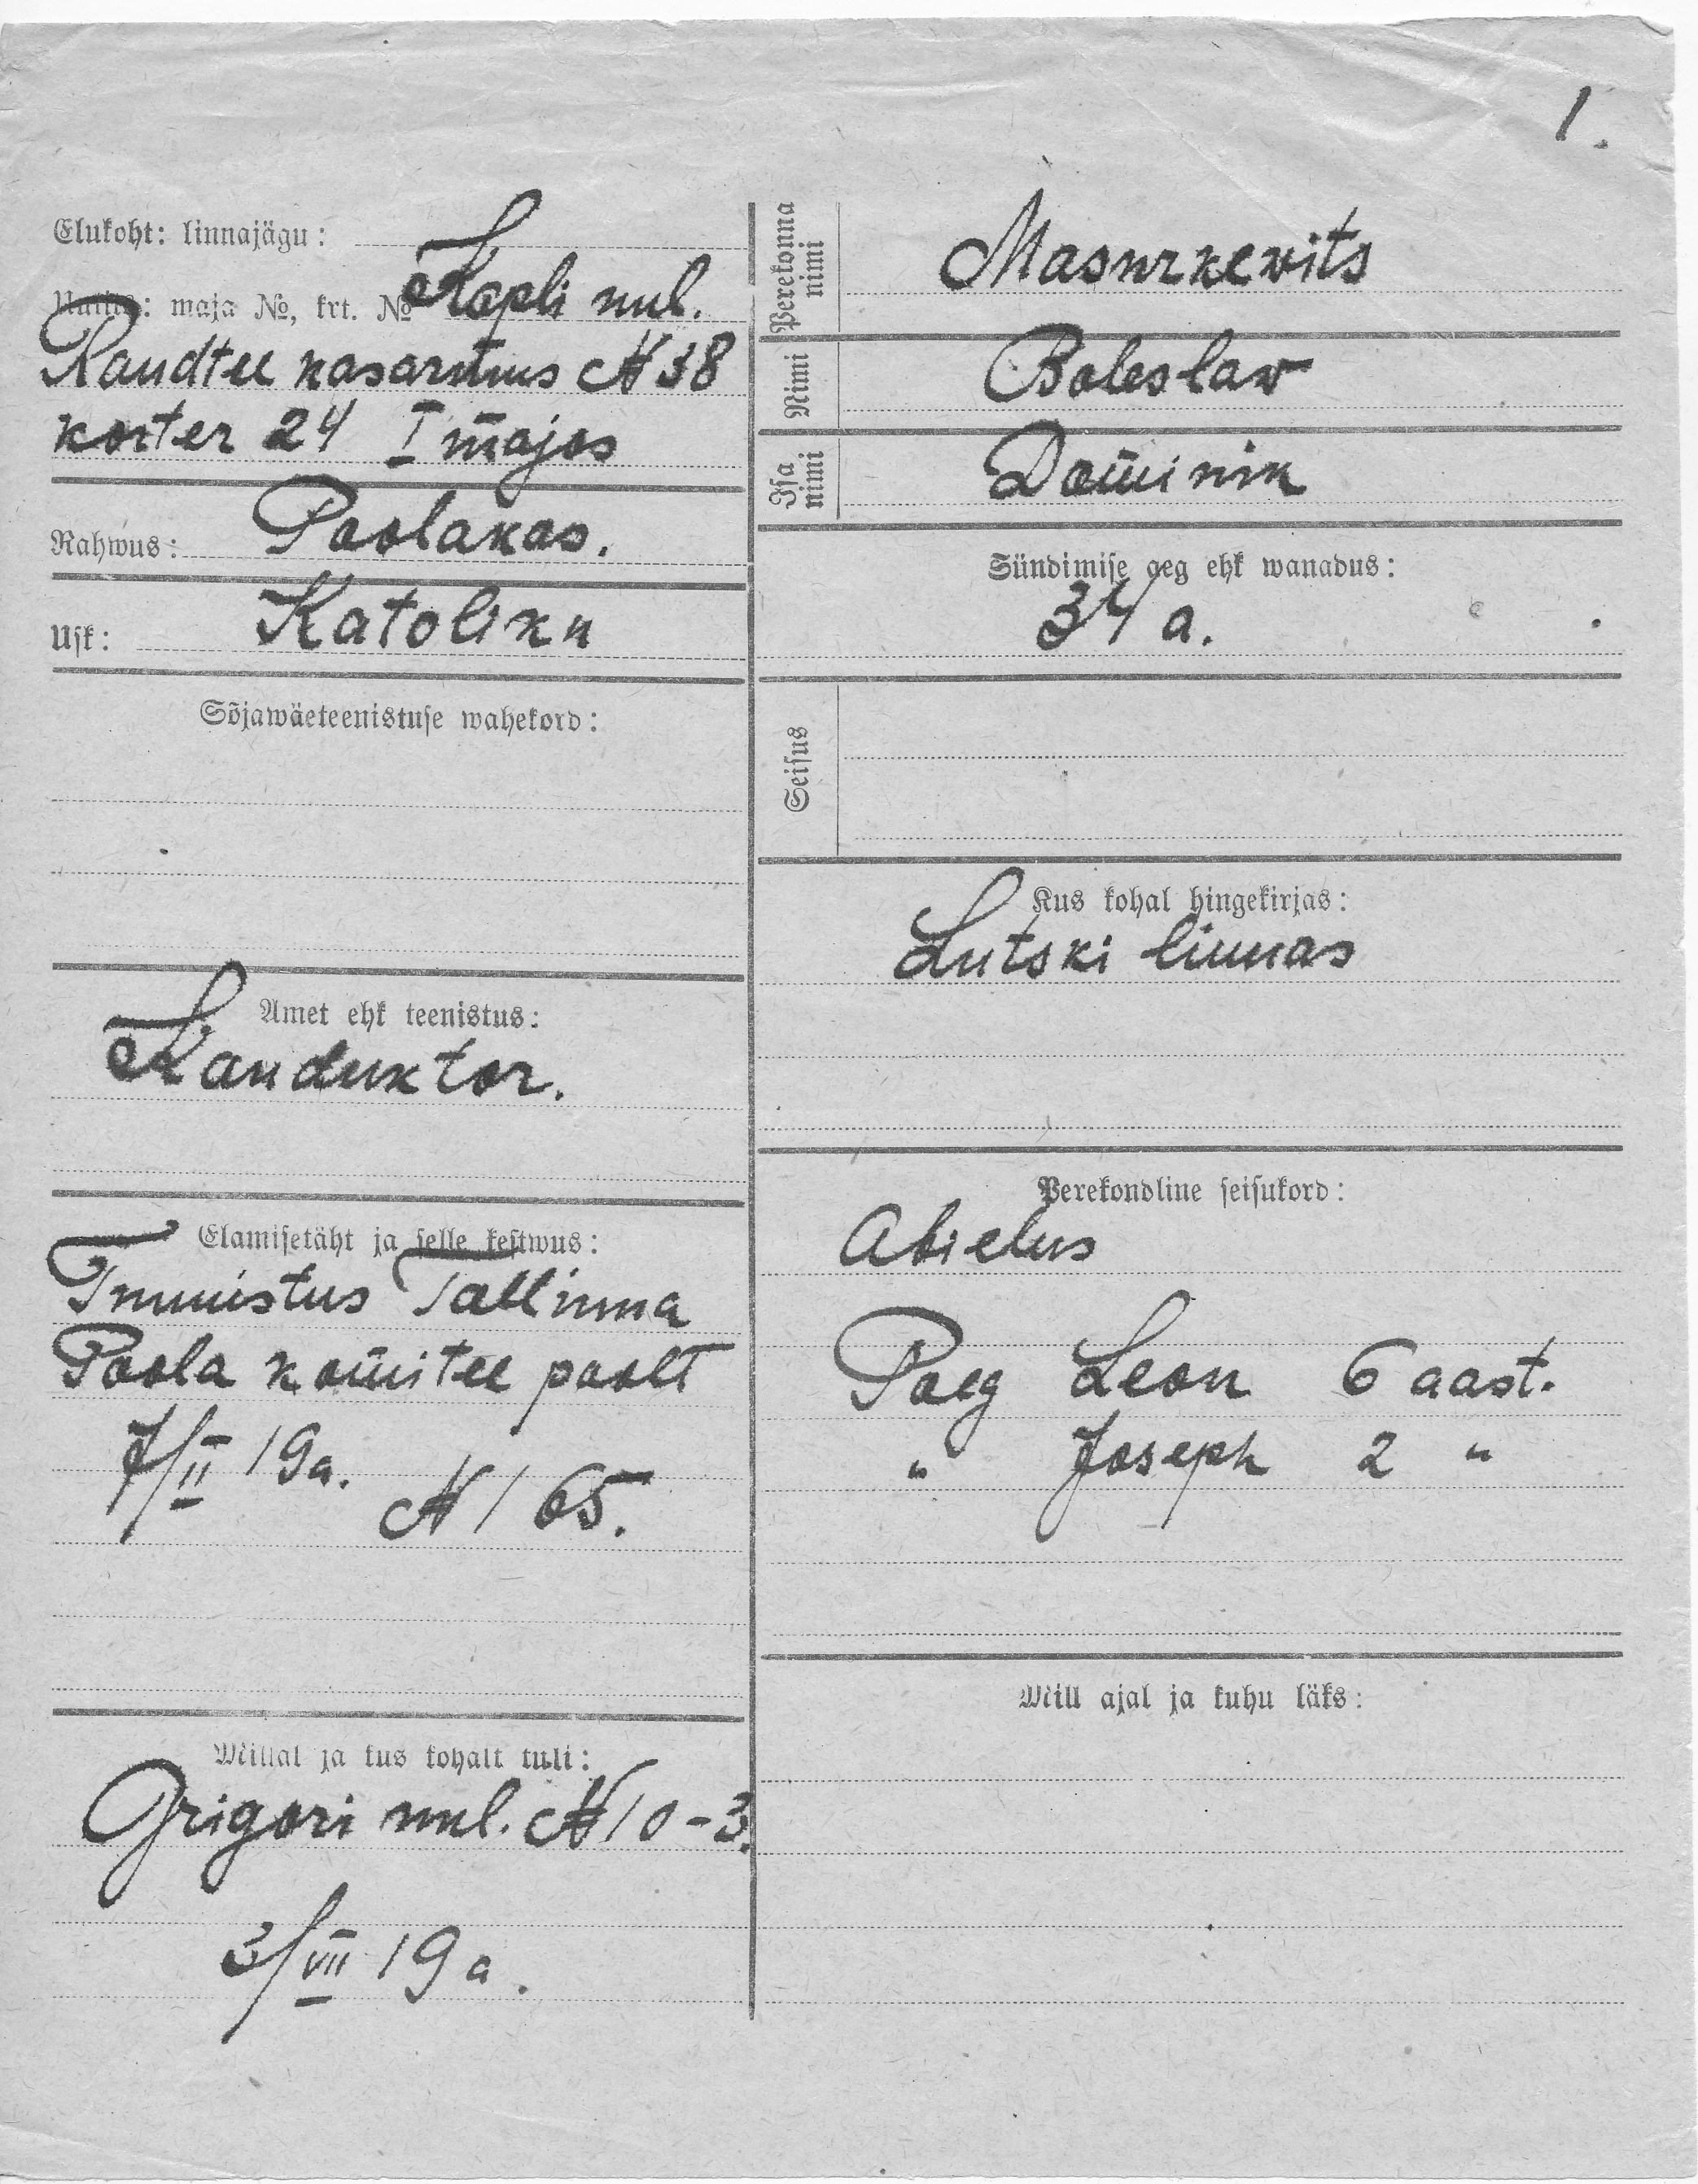 1.
Elukoht: linnajägu:
maja №, krt. № Kopli uul.
Raudtee kasarmus № 38
korter 24 I majas
Rahwus: Poolakas.
Usk: Katoliku
Sõjawäeteenistuse wahekord:
Amet ehk teenistus:
Konduktor.
Elamisetäht ja selle kestwus:
Tunnistus Tallinna
Poola kom̄itee poolt
7/II 19a. № 165.
Millal ja kus kohalt tuli:
Grigori uul. № 10-3.
3/VII 19a.
Perekonna nimi Masurkewits
Nimi Boleslaw
Isa nimi Dom̄inik
Sündimise aeg ehk wanadus:
34 a.
Seisus
Kus kohal hingekirjas:
Lutski linnas
Perekondline seisukord:
Abielus
Poeg Leon 6 aast.
" Joseph 2 "
Mill ajal ja kuhu läks: